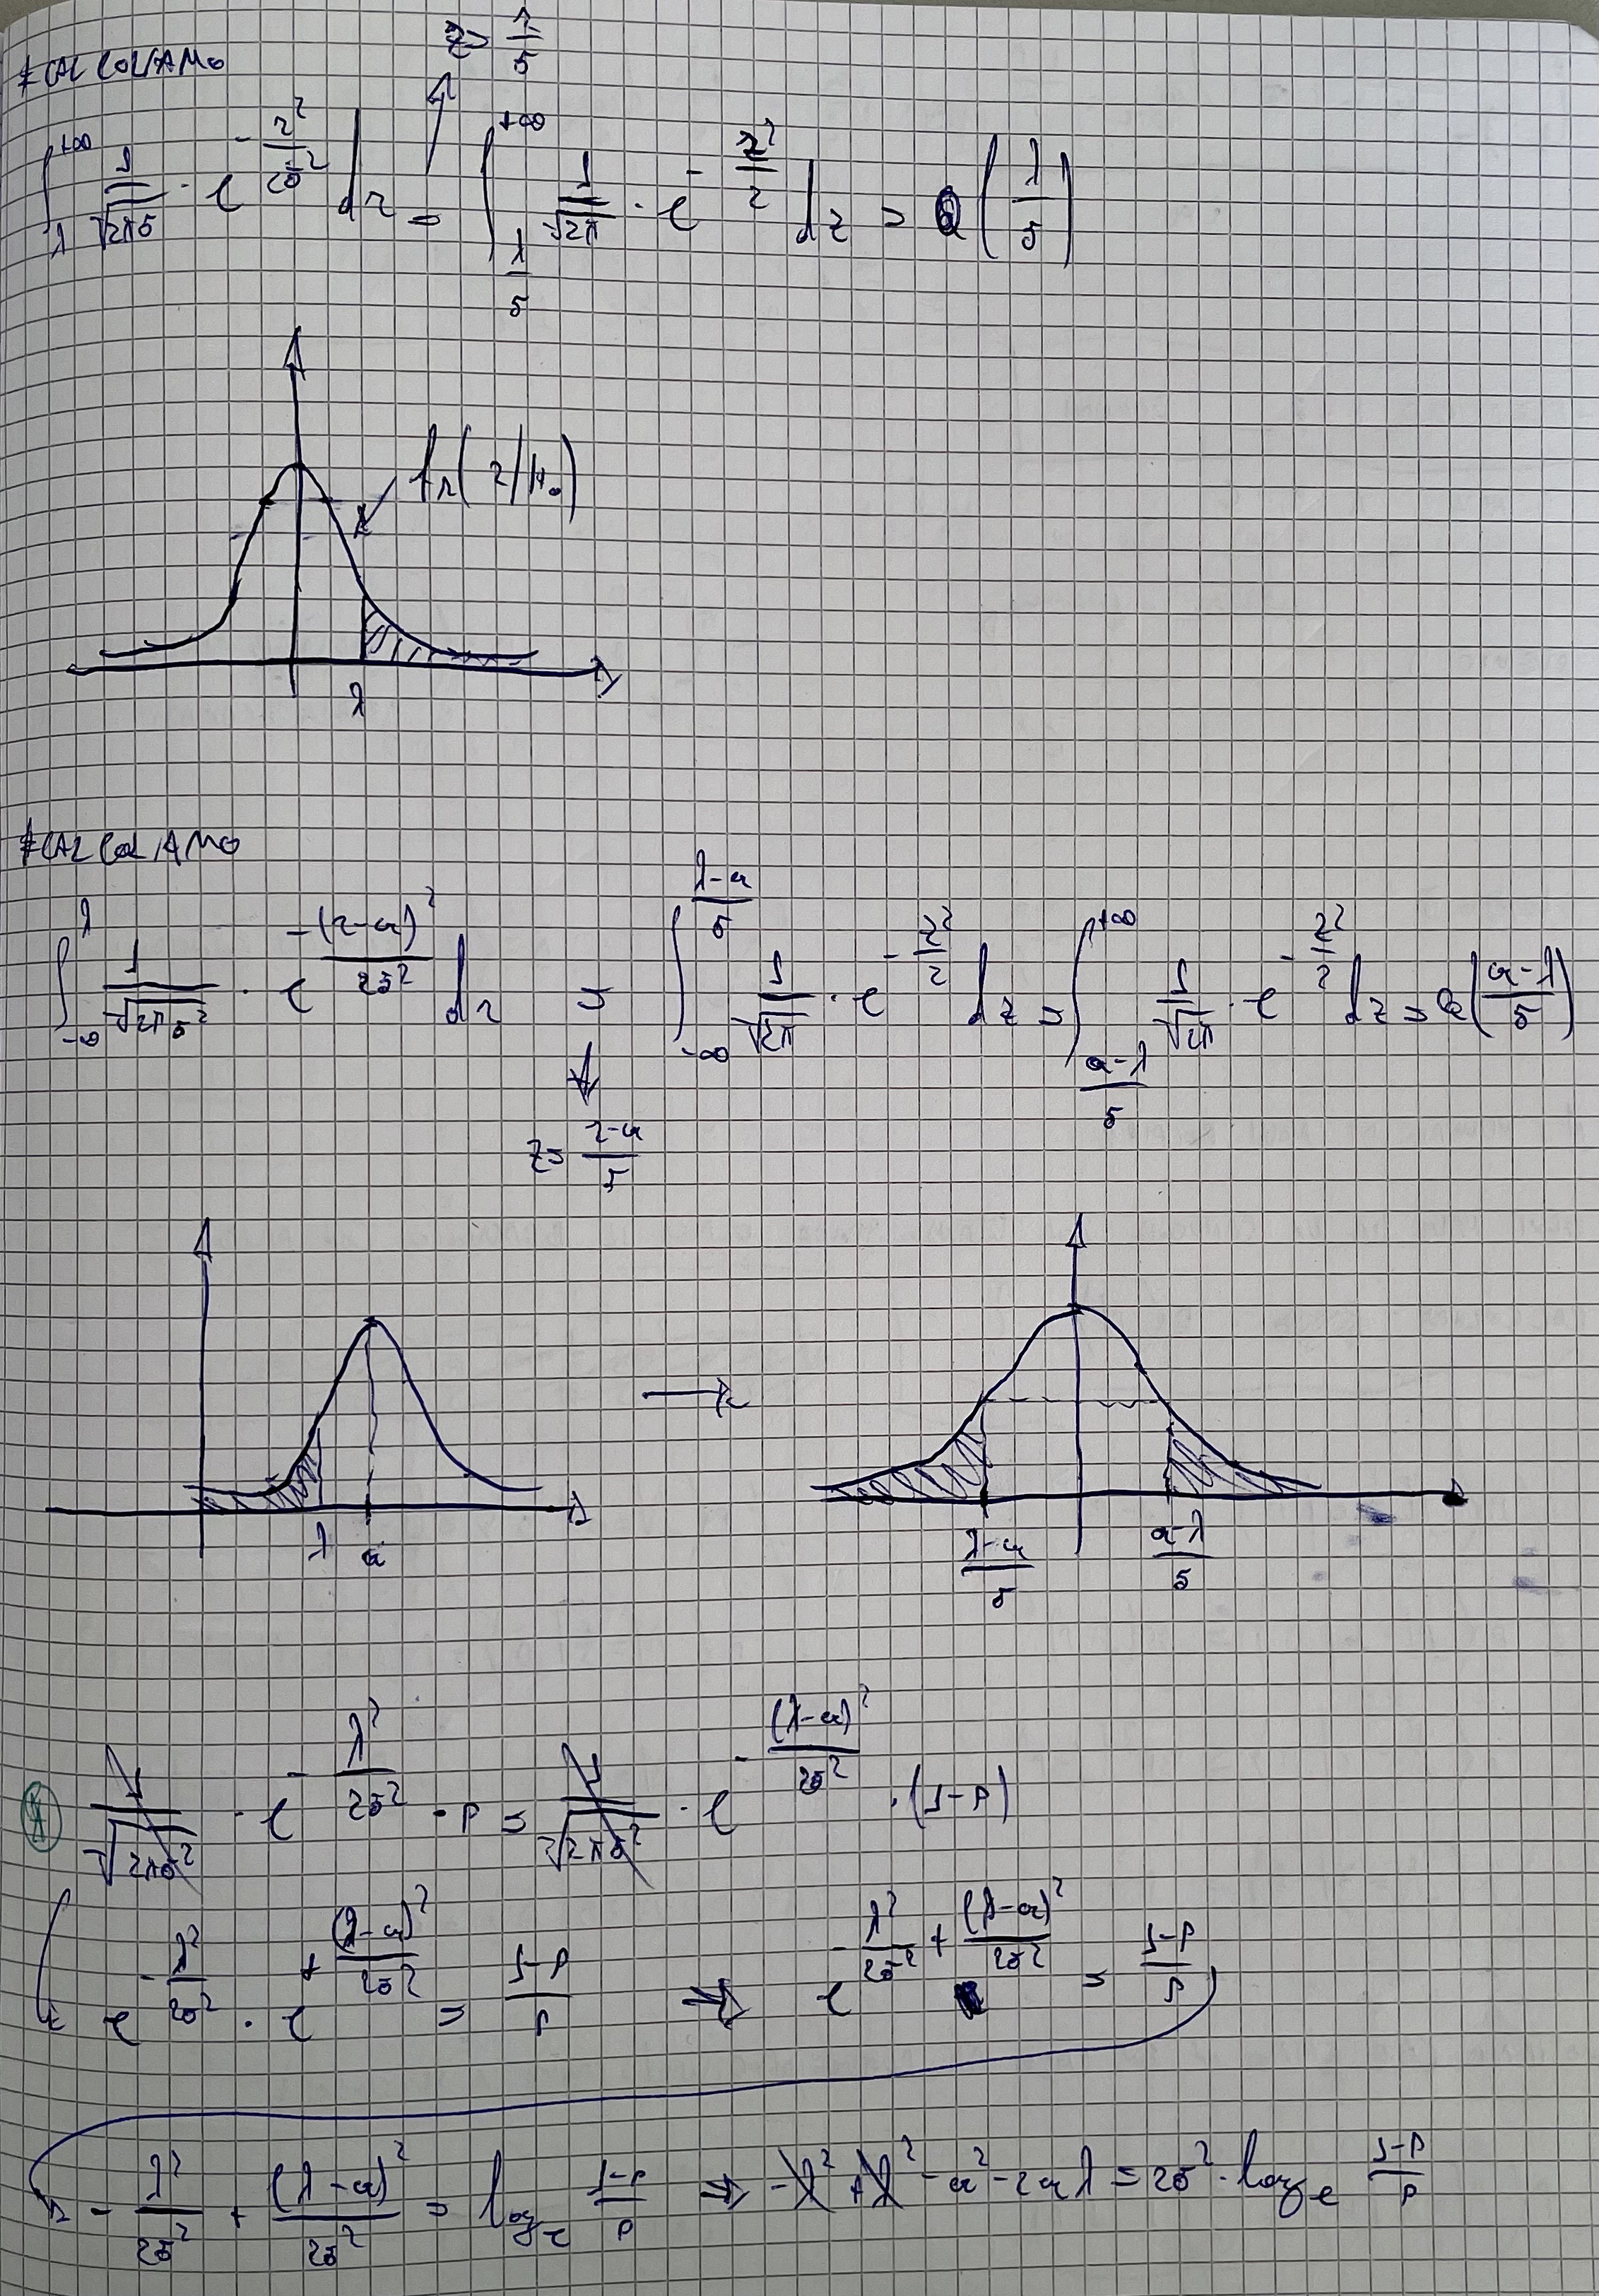 *CALCOLIAMO
z = r/σ
∫_λ^{+∞} 1/√2πσ · e^{-r²/2σ²} dr = ∫_{λ/σ}^{+∞} 1/√2π · e^{-z²/2} dz = Q(λ/σ)
fr(r/H₀)
λ
*CALCOLIAMO
∫_{-∞}^λ 1/√2πσ² · e^{-(r-a)²/2σ²} dr = ∫_{-∞}^{(λ-a)/σ} 1/√2π · e^{-z²/2} dz = ∫_{(a-λ)/σ}^{+∞} 1/√2π · e^{-z²/2} dz = Q((a-λ)/σ)
z = (r-a)/σ
λ a (λ-a)/σ (a-λ)/σ
* 1/√2πσ² · e^{-λ²/2σ²} · P = 1/√2πσ² · e^{-(λ-a)²/2σ²} · (1-P)
e^{-λ²/2σ²} · e^{+(λ-a)²/2σ²} = (1-P)/P ⇒ e^{-λ²/2σ² + (λ-a)²/2σ²} = (1-P)/P
-λ²/2σ² + (λ-a)²/2σ² = log_e (1-P)/P ⇒ -λ² + λ² - a² - 2aλ = 2σ² · log_e (1-P)/P